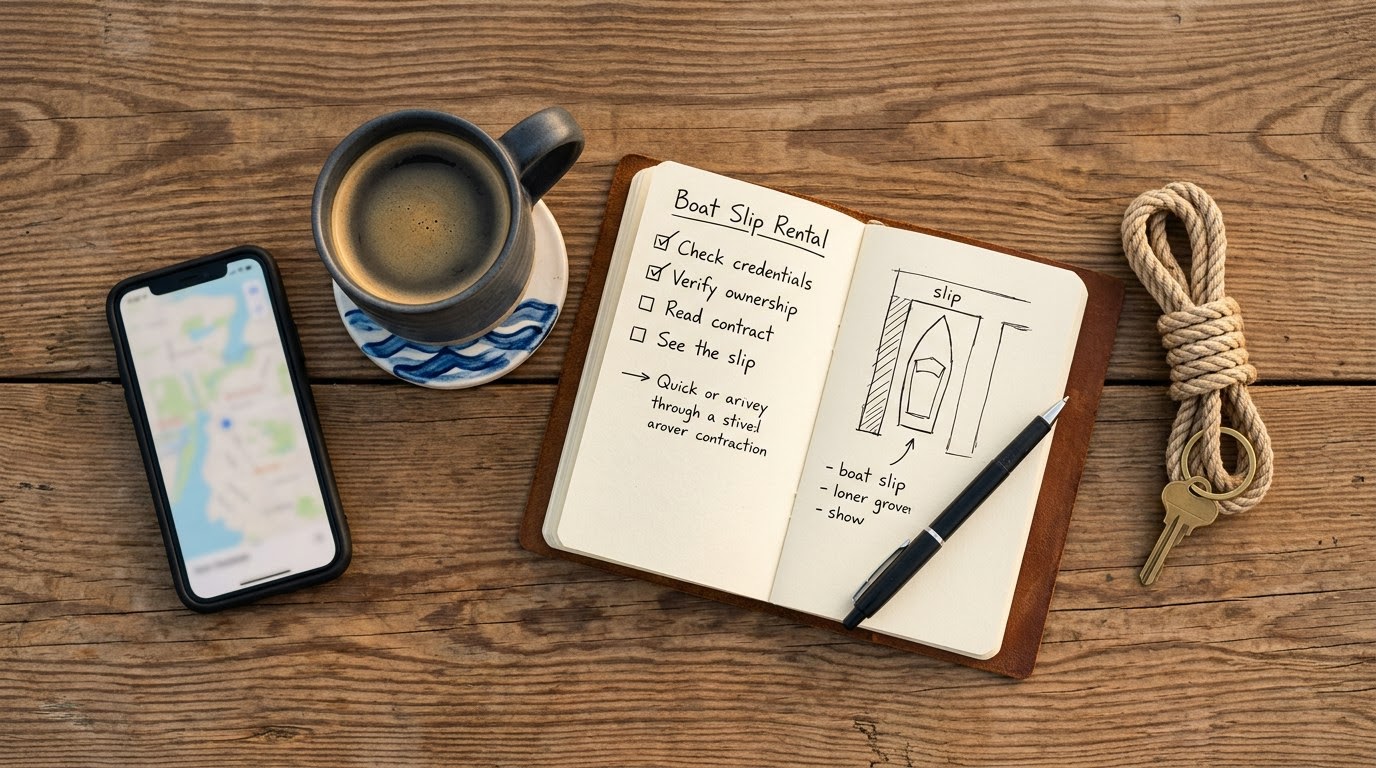 Boat Slip Rental
Check credentials
Verify ownership
Read contract
See the slip
→ Quick or arivey
through a stived
arover contraction
slip
- boat slip
- loner grover
- show